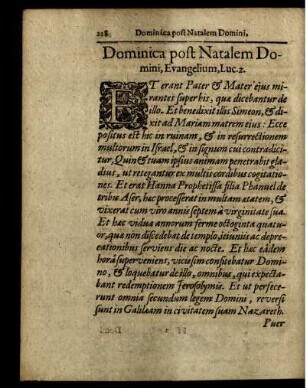 228. Dominica post Natalem Domini,
Dominica post Natalem Do-
mini, Evangelium, Luc. 2.
ET erant Pater & Mater ejus mi-
rantes super his, quæ dicebantur de
illo. Et benedixit illis Simeon, & di-
xit ad Mariam matrem ejus: Ecce
positus est hic in ruinam, & in resurrectionem
multorum in Israel, & in signum cui contradici-
tur, Quin & tuam ipsius animam penetrabit gla-
dius, ut retegantur ex multis cordibus cogitatio-
nes. Et erat Hanna Prophetissa filia Phanuel de
tribu Aser, hæc processerat in multam ætatem, &
vixerat cum viro annis septem à virginitate sua.
Et hæc vidua annorum ferme octoginta quatu-
or, quæ non discedebat de templo, jejuniis ac depre-
cationibus serviens die ac nocte. Et hæc eâdem
horâ superveniens, vicissim confitebatur Domi-
no, & loquebatur de illo, omnibus, qui expecta-
bant redemptionem Jerosolymis. Et ut perfece-
runt omnia secundum legem Domini, reversi
sunt in Galilæam in civitatem suam Nazareth.
Puer